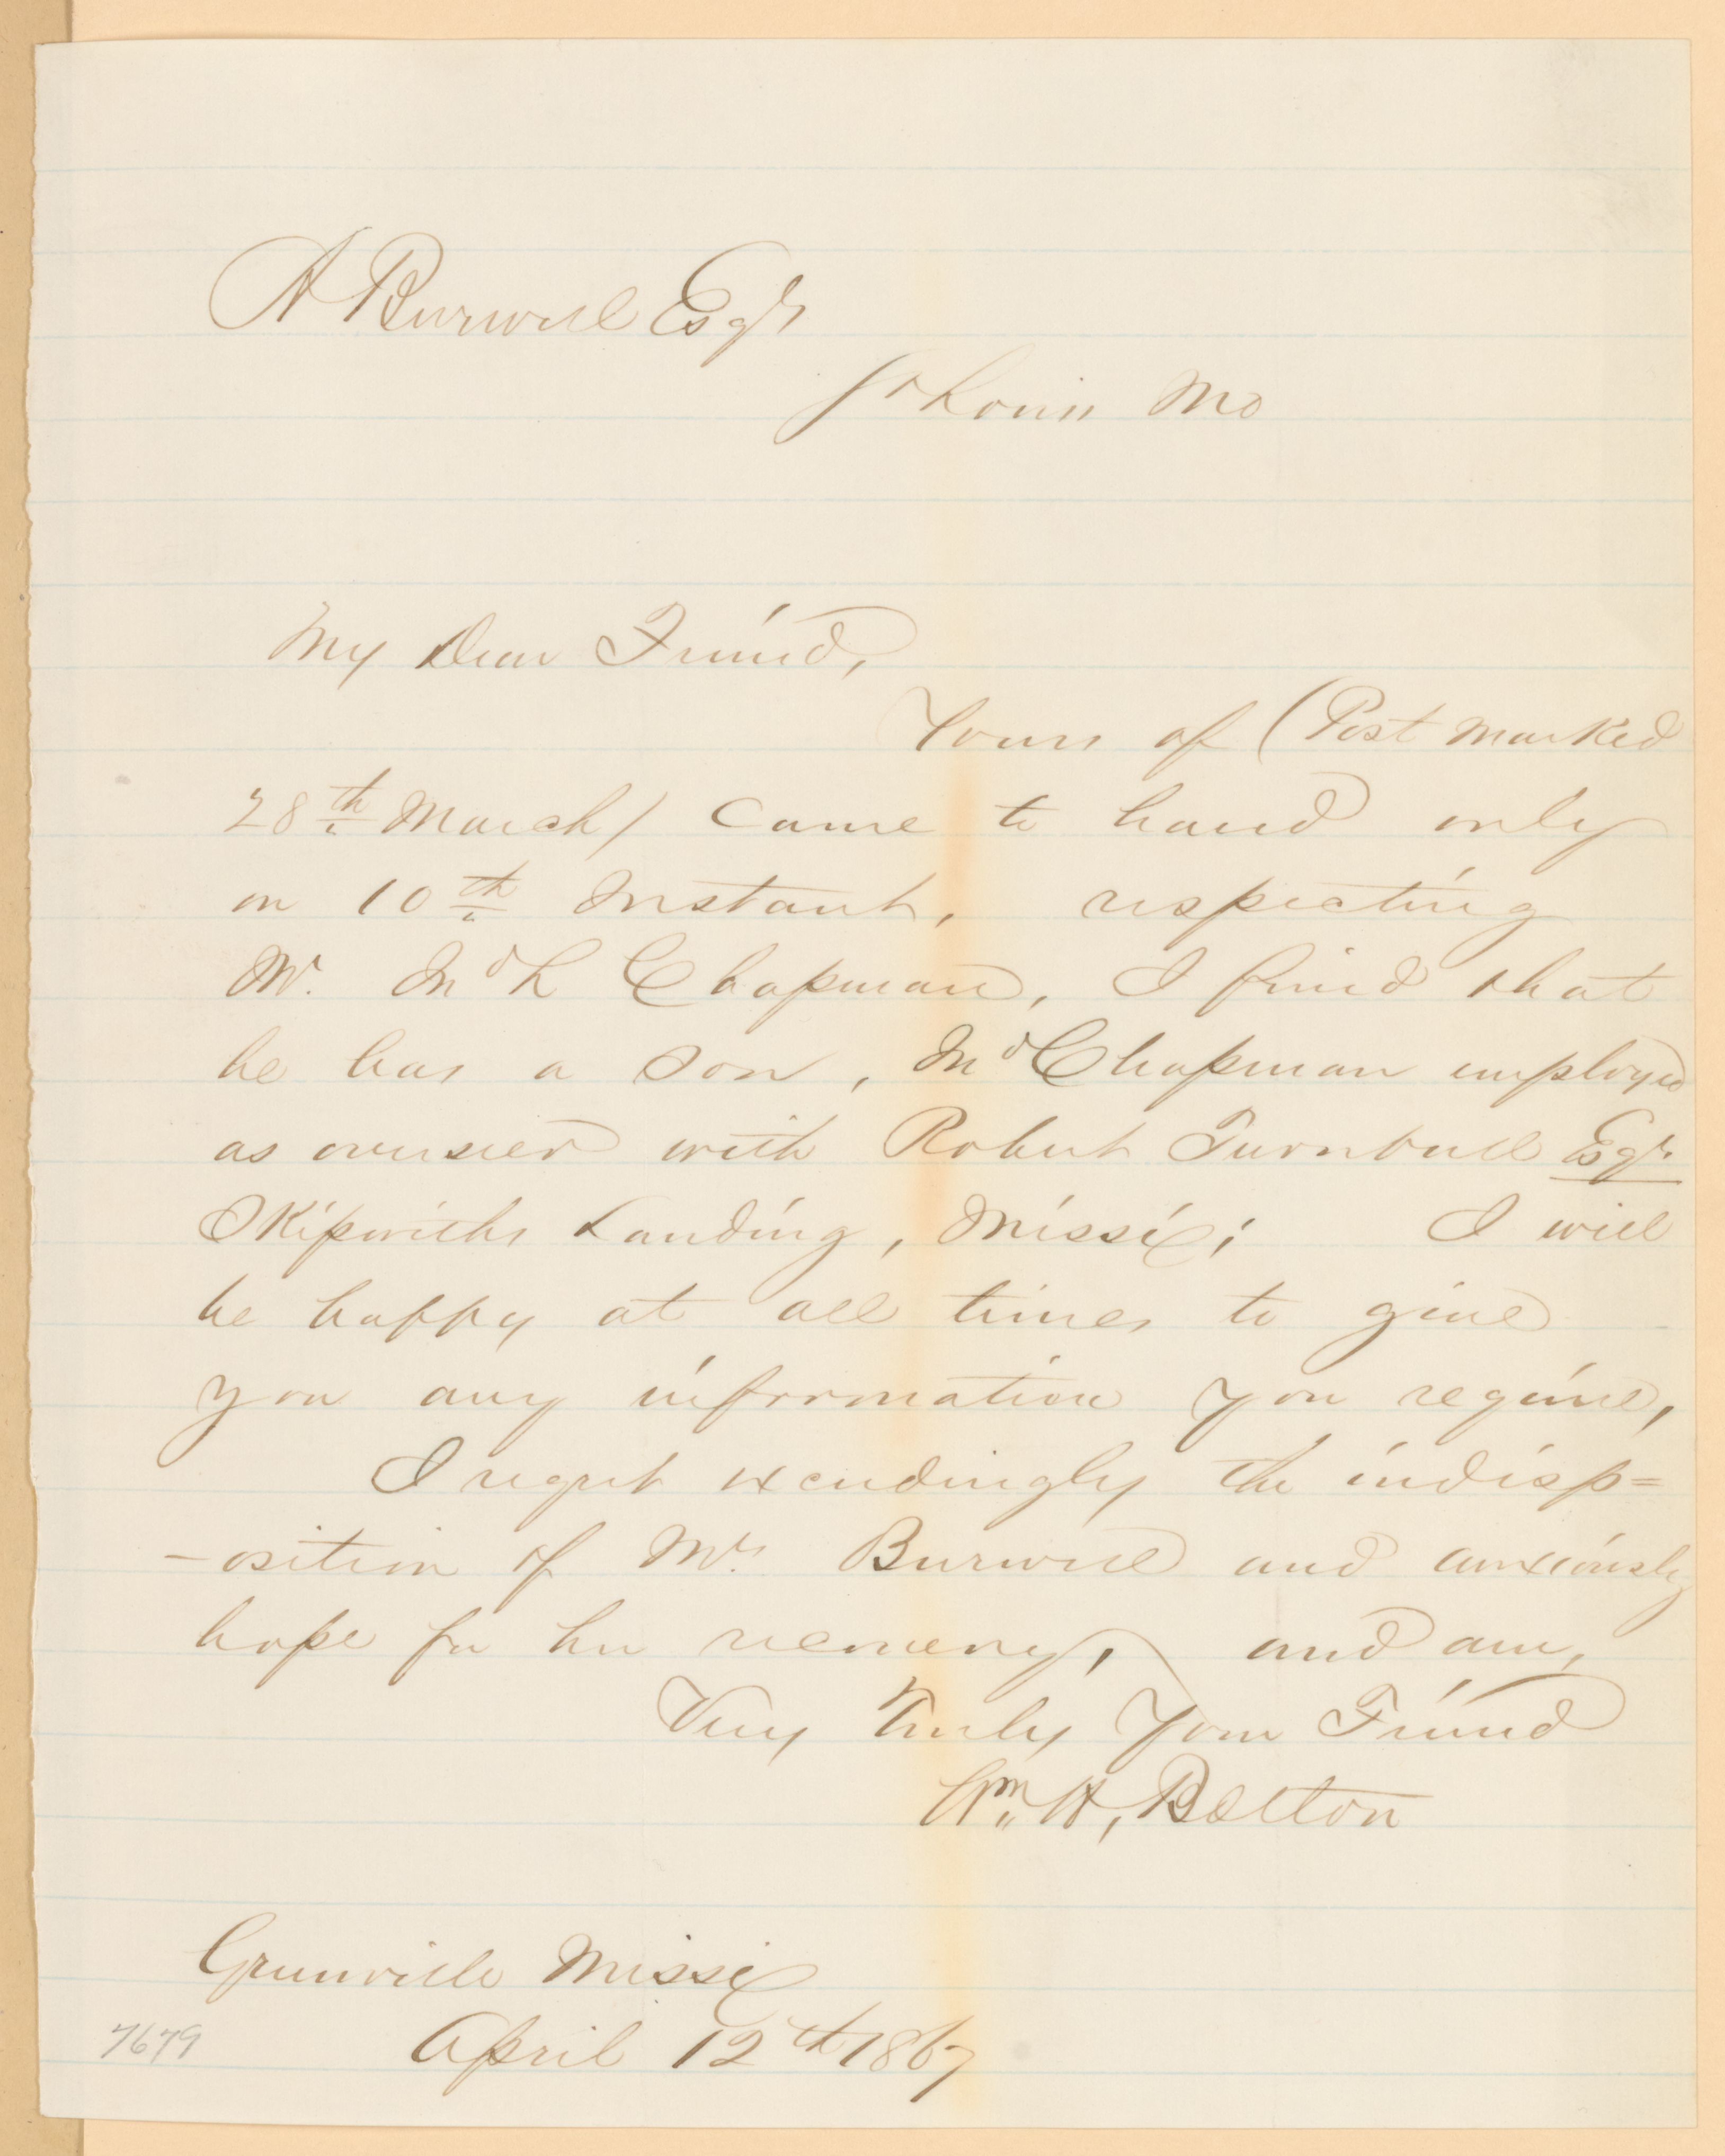 A Burwell Esqr
St Louis Mo
My Dear Friend,
Yours of (Post marked
28th March) came to hand only
on 10th Instant, respecting
Mr. Jno L Chapman, I find that
he has a son, Jno Chapman employed
as overseer with Robert Turnbull Esqr.
Skipwiths Landing, Missi; I will
be happy at all times to give
you any information you require,
I regret exceedingly the indisp=
-osition of Mrs. Burwell and anxiously
hope for her recovery, and am,
Very Truly Your Friend
Wm. H, Bolton
Greenville Missi
April 12th 1867
7679